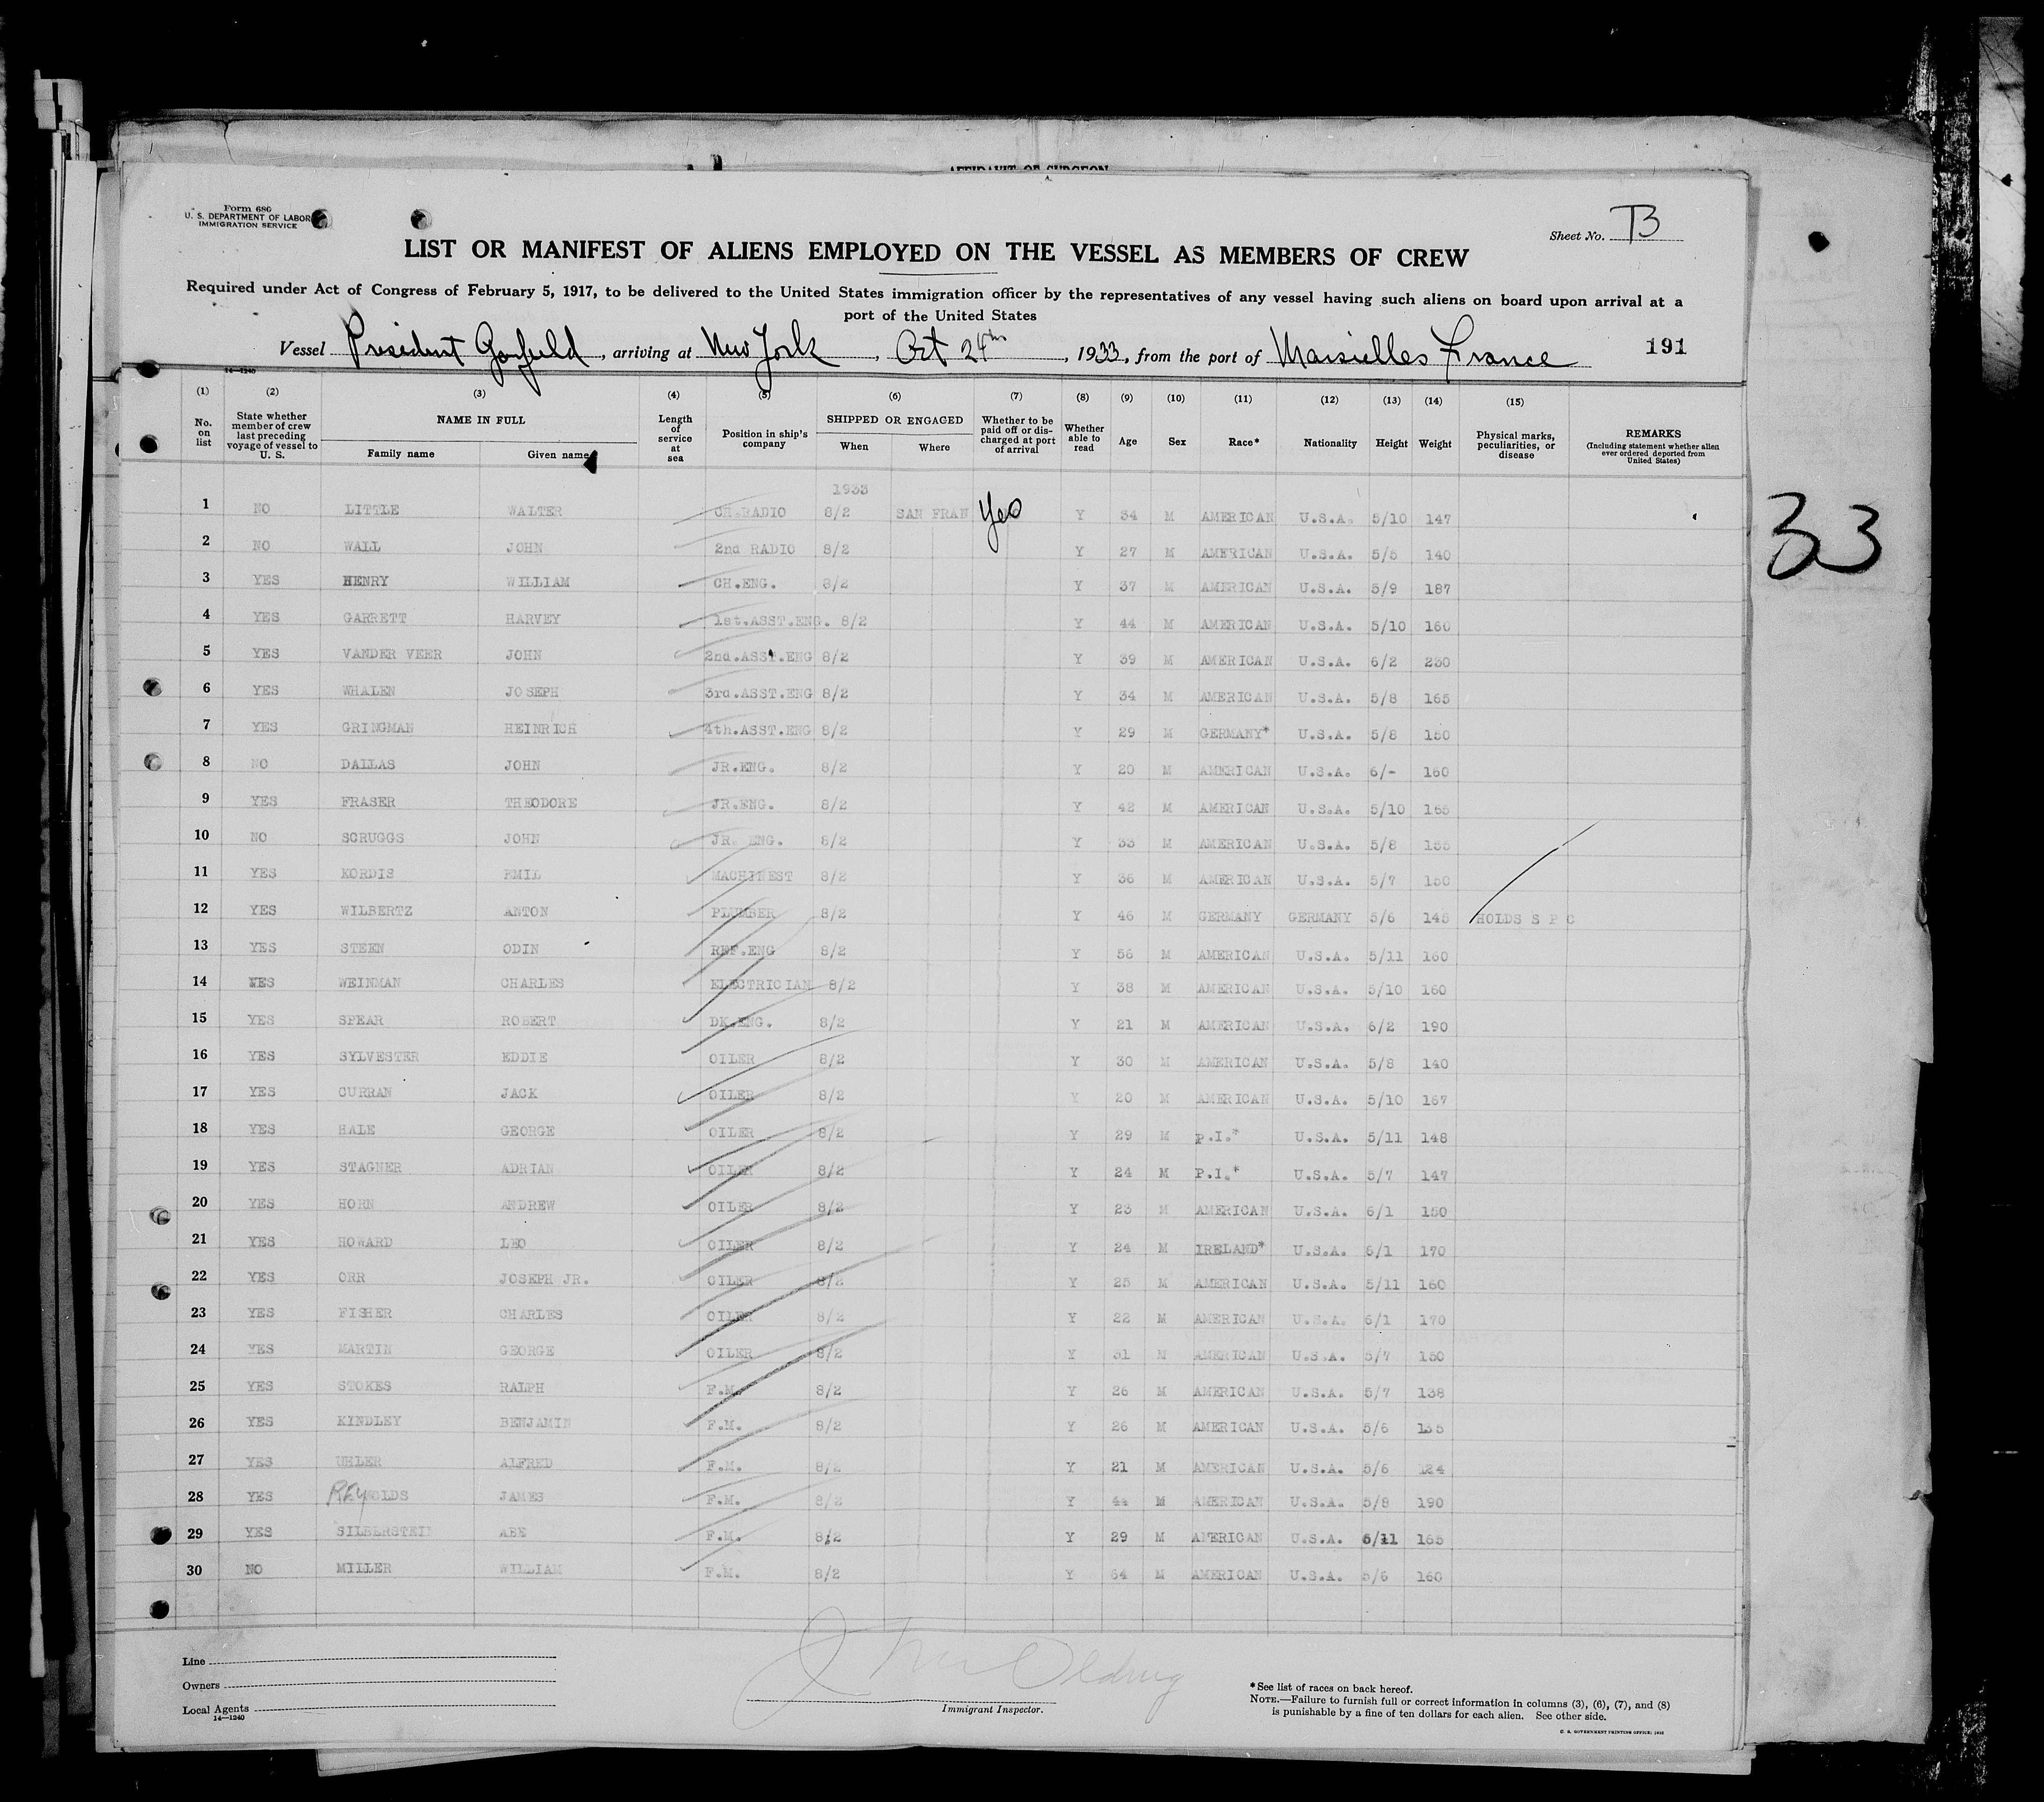 AFFIDAVIT OF SURGEON
Form 686
U. S. DEPARTMENT OF LABOR
IMMIGRATION SERVICE
Sheet No. TB
LIST OR MANIFEST OF ALIENS EMPLOYED ON THE VESSEL AS MEMBERS OF CREW
Required under Act of Congress of February 5, 1917, to be delivered to the United States immigration officer by the representatives of any vessel having such aliens on board upon arrival at a
port of the United States
Vessel President Garfield, arriving at New York, Oct 24th, 1933, from the port of Marsielles France 191
14—1240
(1) (2) (3) (4) (5) (6) (7) (8) (9) (10) (11) (12) (13) (14) (15)
No. on list State whether member of crew last preceding voyage of vessel to U. S. NAME IN FULL Family name Given name Length of service at sea Position in ship's company SHIPPED OR ENGAGED When Where Whether to be paid off or discharged at port of arrival Whether able to read Age Sex Race* Nationality Height Weight Physical marks, peculiarities, or disease REMARKS (Including statement whether alien ever ordered deported from United States)
1933
1 NO LITTLE WALTER CH.RADIO 8/2 SAN FRAN Yes Y 34 M AMERICAN U.S.A. 5/10 147
2 NO WALL JOHN 2nd RADIO 8/2 Y 27 M AMERICAN U.S.A. 5/5 140
3 YES HENRY WILLIAM CH.ENG. 8/2 Y 37 M AMERICAN U.S.A. 5/9 187
4 YES GARRETT HARVEY 1st.ASST.ENG. 8/2 Y 44 M AMERICAN U.S.A. 5/10 160
5 YES VANDER VEER JOHN 2nd.ASST.ENG 8/2 Y 39 M AMERICAN U.S.A. 6/2 230
6 YES WHALEN JOSEPH 3rd.ASST.ENG 8/2 Y 34 M AMERICAN U.S.A. 5/8 165
7 YES GRINGMAN HEINRICH 4th.ASST.ENG 8/2 Y 29 M GERMANY* U.S.A. 5/8 150
8 NO DALLAS JOHN JR.ENG. 8/2 Y 20 M AMERICAN U.S.A. 6/- 160
9 YES FRASER THEODORE JR.ENG. 8/2 Y 42 M AMERICAN U.S.A. 5/10 165
10 NO SCRUGGS JOHN JR. ENG. 8/2 Y 33 M AMERICAN U.S.A. 5/8 155
11 YES KORDIS EMIL MACHINEST 8/2 Y 36 M AMERICAN U.S.A. 5/7 150
12 YES WILBERTZ ANTON PLUMBER 8/2 Y 46 M GERMANY GERMANY 5/6 145 HOLDS S P C
13 YES STEEN ODIN REF.ENG 8/2 Y 56 M AMERICAN U.S.A. 5/11 160
14 YES WEINMAN CHARLES ELECTRICIAN 8/2 Y 38 M AMERICAN U.S.A. 5/10 160
15 YES SPEAR ROBERT DK.ENG. 8/2 Y 21 M AMERICAN U.S.A. 6/2 190
16 YES SYLVESTER EDDIE OILER 8/2 Y 30 M AMERICAN U.S.A. 5/8 140
17 YES CURRAN JACK OILER 8/2 Y 20 M AMERICAN U.S.A. 5/10 167
18 YES HALE GEORGE OILER 8/2 Y 29 M P.I.* U.S.A. 5/11 148
19 YES STAGNER ADRIAN OILER 8/2 Y 24 M P.I.* U.S.A. 5/7 147
20 YES HORN ANDREW OILER 8/2 Y 23 M AMERICAN U.S.A. 6/1 150
21 YES HOWARD LEO OILER 8/2 Y 24 M IRELAND* U.S.A. 6/1 170
22 YES ORR JOSEPH JR. OILER 8/2 Y 25 M AMERICAN U.S.A. 5/11 160
23 YES FISHER CHARLES OILER 8/2 Y 22 M AMERICAN U.S.A. 6/1 170
24 YES MARTIN GEORGE OILER 8/2 Y 31 M AMERICAN U.S.A. 5/7 150
25 YES STOKES RALPH F.M. 8/2 Y 26 M AMERICAN U.S.A. 5/7 138
26 YES KINDLEY BENJAMIN F.M. 8/2 Y 26 M AMERICAN U.S.A. 5/6 135
27 YES UHLER ALFRED F.M. 8/2 Y 21 M AMERICAN U.S.A. 5/6 124
28 YES REYNOLDS JAMES F.M. 8/2 Y 44 M AMERICAN U.S.A. 5/8 190
29 YES SILBERSTEIN ABE F.M. 8/2 Y 29 M AMERICAN U.S.A. 5/11 165
30 NO MILLER WILLIAM F.M. 8/2 Y 64 M AMERICAN U.S.A. 5/6 160
33
Line
Owners
Local Agents
14—1240
Immigrant Inspector.
*See list of races on back hereof.
NOTE.—Failure to furnish full or correct information in columns (3), (6), (7), and (8)
is punishable by a fine of ten dollars for each alien. See other side.
U. S. GOVERNMENT PRINTING OFFICE: